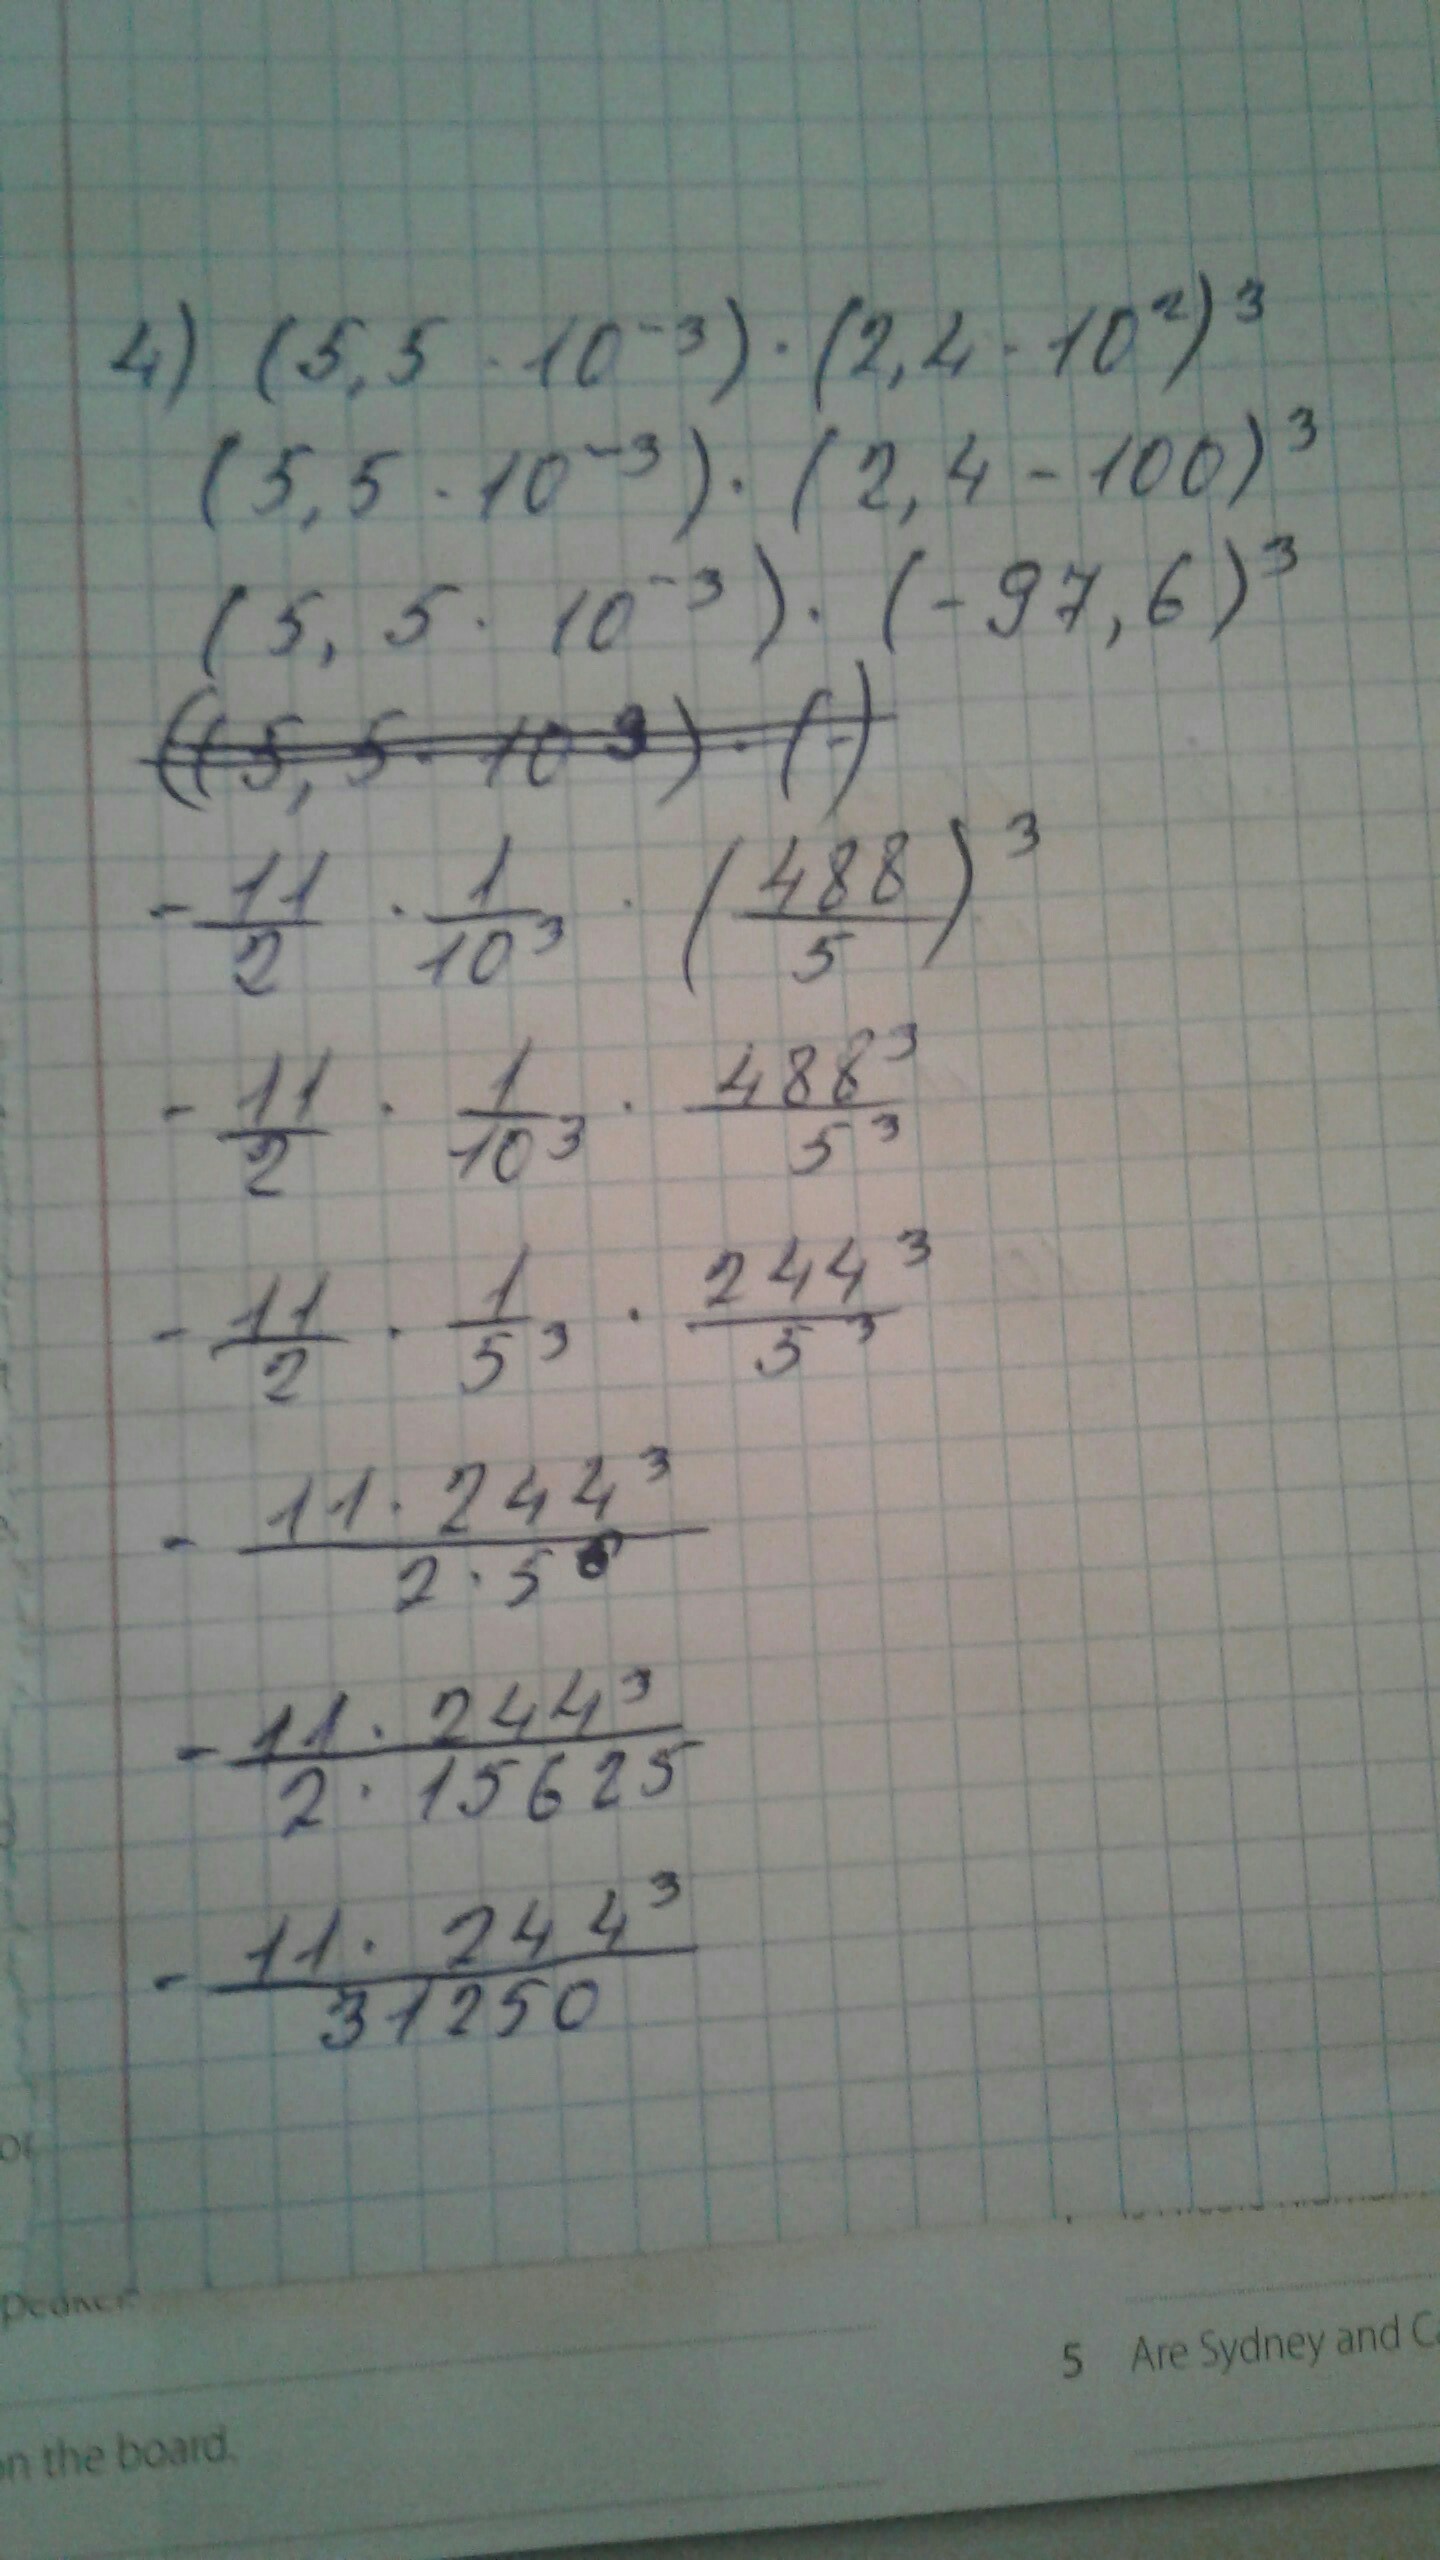 4) (5,5 · 10⁻³) · (2,4 - 10²)³
(5,5 · 10⁻³) · (2,4 - 100)³
(5,5 · 10⁻³) · (-97,6)³
((5,5 · 10 3) · (-)
- 11/2 · 1/10³ · (488/5)³
- 11/2 · 1/10³ · 488³/5³
- 11/2 · 1/5³ · 244³/5³
- 11 · 244³/2 · 5⁶
- 11 · 244³/2 · 15625
- 11 · 244³/31250
5 Are Sydney and
on the board.